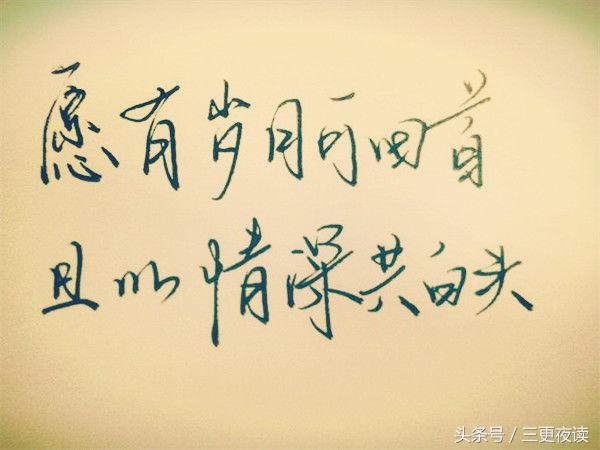 愿有岁月可回首
且以情深共白头
头条号 / 三更夜读